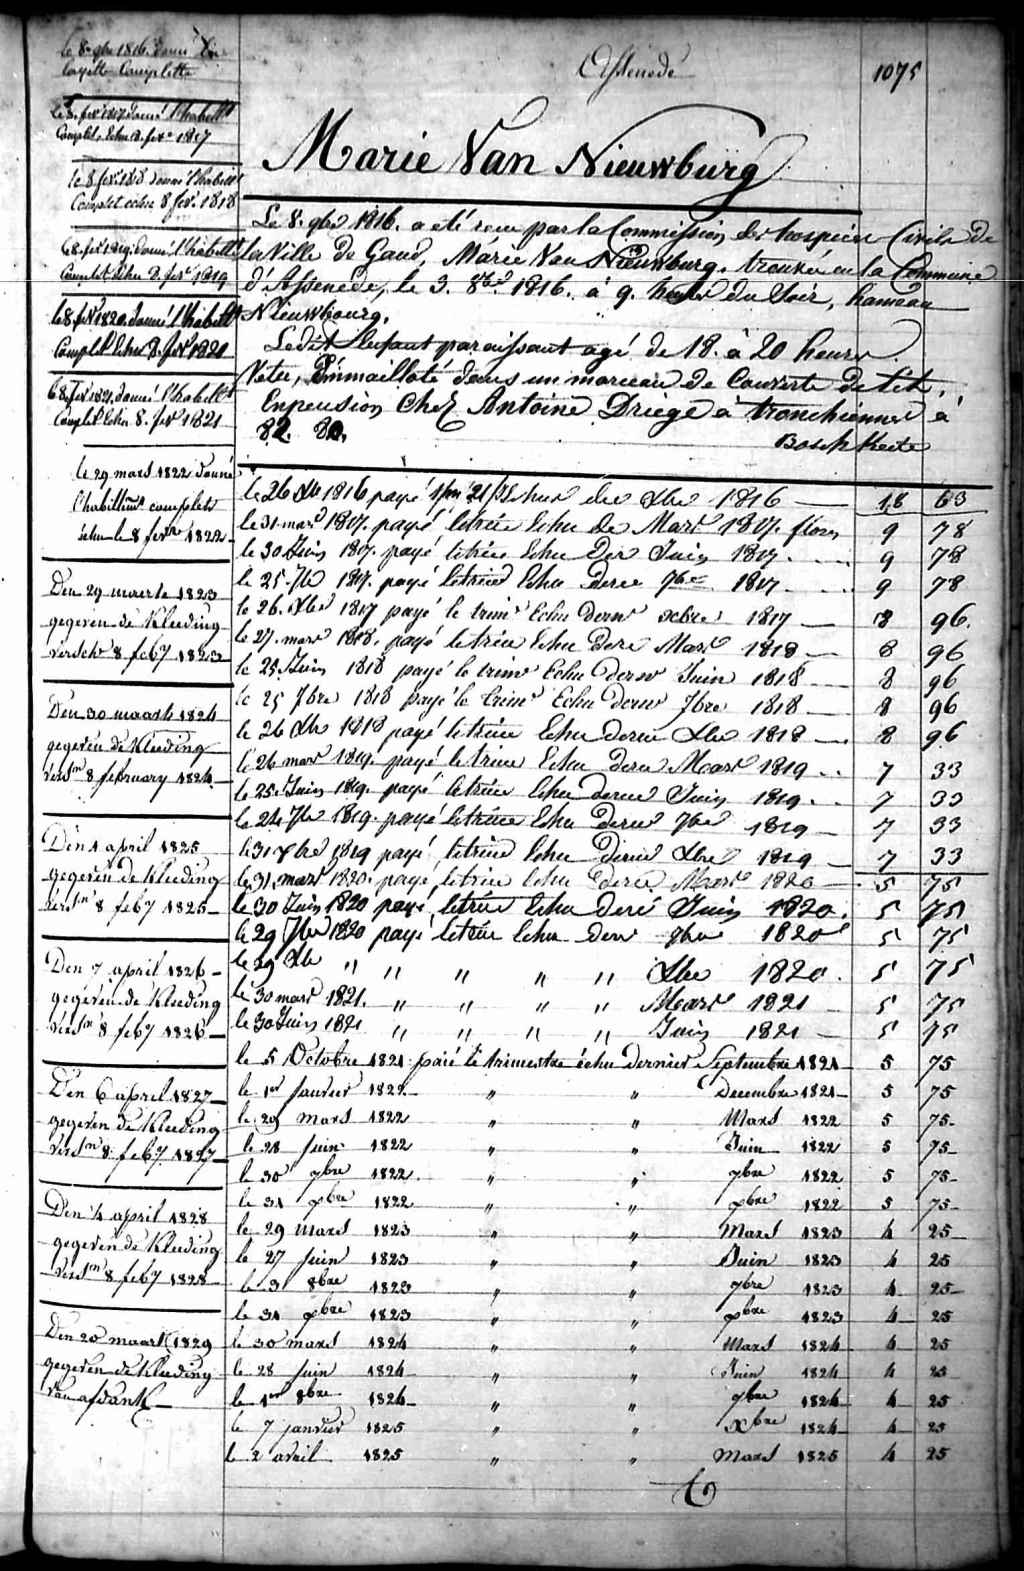 le 8 gbre 1816. donné une
layette Complette
Assenede
1075
le 8. fevr 1817 donné l'habillt
Complet Echu 8. fevr 1817
Marie Van Nieuwburg
le 8 fevr. 1818 donné l'habillt
Complet echu 8 fevr. 1818
le 8. fevr 1819. donné l'habillt
Complet Echu 8. fevr 1819
le 8. fevr 1820. donné l'habillt
Complet Echu 8. fevr 1820
le 8. fevr 1821. donné l'habillt
Complet Echu 8. fevr 1821
Le 8. gbre 1816. a eté recu par la Commission des hospices Civils de
la Ville de Gand, Marie Van Nieuwburg. trouvée en la Commune
d'Assenede, le 3. 8bre 1816. à 9. heures du Soir, hameau
Nieuwbourg.
Ledit Enfant paraissant agé de 18. à 20 heures.
Vetu, Emmailloté dans un morceau de Couverte de lit.
En pension Chez Antoine Driège à tronchiennes à
82. 80.
le 29 mars 1822 donné
l'habillemt complet
échu le 8 fevrier 1822
Den 29 maerte 1823
gegeven de Kleeding
versch 8 feby 1823
Den 30 maart 1824
gegeven de Kleeding
versn 8 february 1824
Den 1 april 1825
gegeven de Kleeding
versn 8 feby 1825
Den 7 april 1826
gegeven de Kleeding
versn 8 feby 1826
Den 6 april 1827
gegeven de Kleeding
versn 8. feby 1827
Den 4 april 1828
gegeven de Kleeding
versn 8 feby 1828
Den 20 maart 1829
gegeven de Kleeding
van afdank
le 26 Xbre 1816 payé Echus de Xbre 1816 18 63
le 31 mars 1817. payé le trim Echu de Mars 1817. florins 9 78
le 30 Juin 1817. payé le trim Echu Der Juin 1817. 9 78
le 25 7bre 1817. payé le trim Echu Derer 7bre 1817 9 78
le 26. Xbre 1817 payé le trim Echu Dernr xbre 1817 8 96.
le 27. mars 1818. payé le trim Echu Derer Mars 1818 8 96
le 25. Juin 1818 payé le trim Echu Dernr Juin 1818 8 96
le 25 7bre 1818 payé le trim Echu Dernr 7bre 1818 8 96
le 26 Xbre 1818 payé le trim Echu Dernr Xbre 1818 8 96
le 26 mars 1819. payé le trim Echu Derer Mars 1819 7 33
le 25. Juin 1819. payé le trim Echu Derer Juin 1819. 7 33
le 24 7bre 1819. payé le trim Echu Derer 7bre 1819 7 33
le 31 xbre 1819 payé le trim Echu Dernr Xbre 1819 7 33
le 31. mars 1820. payé le trim Echu Derer Mars 1820 5 75
le 30 Juin 1820 payé le trim Echu Derer Juin 1820. 5 75
le 29 7bre 1820 payé le trim Echu Dern 7bre 1820 5 75
le 29 Xbre " " " " " Xbre 1820. 5 75
le 30 mars 1821. " " " " Mars 1821 5 75
le 30 Juin 1821 " " " " Juin 1821 5 75
le 5 Octobre 1821 paié le trimestre échu dernier Septembre 1821 5 75
le 1er Janvier 1822. " " Decembre 1821 5 75
le 29 mars 1822 " " Mars 1822 5 75
le 28 juin 1822 " " Juin 1822 5 75
le 30 7bre 1822. " " 7bre 1822 5 75
le 31 xbre 1822 " " xbre 1822 5 75
le 29 mars 1823 " " Mars 1823 4 25
le 27 juin 1823 " " Juin 1823 4 25
le 3 8bre 1823 " " 7bre 1823 4 25
le 31 xbre 1823 " " xbre 1823 4 25
le 30 mars 1824 " " Mars 1824 4 25
le 28 juin 1824 " " Juin 1824 4 25
le 1er 8bre 1824 " " 7bre 1824 4 25
le 7 janvier 1825 " " Xbre 1824 4 25
le 2 avril 1825 " " Mars 1825 4 25